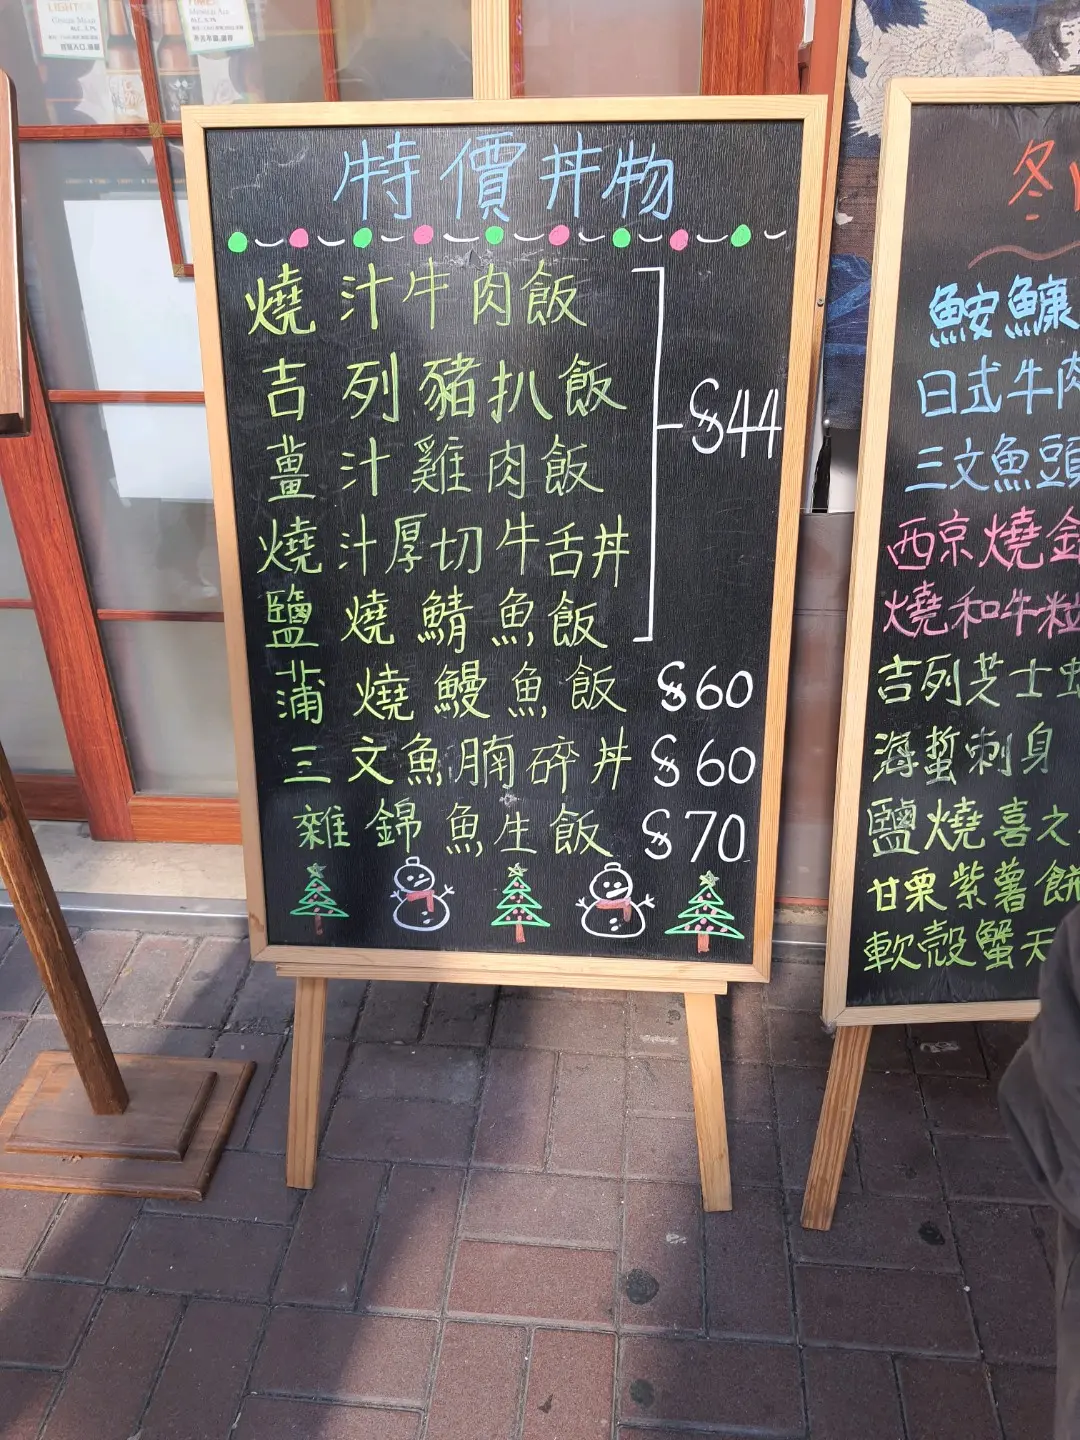 特價丼物
燒汁牛肉飯
吉列豬扒飯
薑汁雞肉飯
燒汁厚切牛舌丼
鹽燒鯖魚飯
$44
蒲燒鰻魚飯 $60
三文魚腩碎丼 $60
雜錦魚生飯 $70
冬
鮟鱇
日式牛肉
三文魚頭
西京燒
燒和牛粒
吉列芝士
海蜇刺身
鹽燒喜之
甘栗紫薯餅
軟殼蟹天
LIGHT